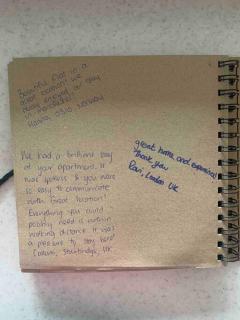 Beautiful flat in a
great location! We
really enjoyed our stay
in
Hanna, Oslo, Norway
We had a brilliant stay
at your apartment. It
was spotless & you were
so easy to communicate
with. Great location!
Everything you could
possibly need is within
walking distance. It was
a pleasure to stay here!
Stourbridge, UK
great home and experience!
Thank you
London UK